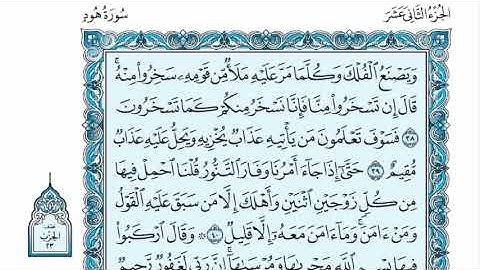 الجُزْءُ الثَّانِي عَشَرَ
سُورَةُ هُودٍ
وَيَصْنَعُ الْفُلْكَ وَكُلَّمَا مَرَّ عَلَيْهِ مَلَأٌ مِّن قَوْمِهِ سَخِرُوا مِنْهُ ۚ
قَالَ إِن تَسْخَرُوا مِنَّا فَإِنَّا نَسْخَرُ مِنكُمْ كَمَا تَسْخَرُونَ
٣٨ فَسَوْفَ تَعْلَمُونَ مَن يَأْتِيهِ عَذَابٌ يُخْزِيهِ وَيَحِلُّ عَلَيْهِ عَذَابٌ
مُّقِيمٌ ٣٩ حَتَّىٰ إِذَا جَاءَ أَمْرُنَا وَفَارَ التَّنُّورُ قُلْنَا احْمِلْ فِيهَا
مِن كُلٍّ زَوْجَيْنِ اثْنَيْنِ وَأَهْلَكَ إِلَّا مَن سَبَقَ عَلَيْهِ الْقَوْلُ
وَمَنْ ءَامَنَ ۚ وَمَا ءَامَنَ مَعَهُ إِلَّا قَلِيلٌ ٤٠ وَقَالَ ارْكَبُوا
فِيهَا بِسْمِ اللَّهِ مَجْرَاهَا وَمُرْسَاهَا ۚ إِنَّ رَبِّي لَغَفُورٌ رَّحِيمٌ
الحِزْبُ
٢٣